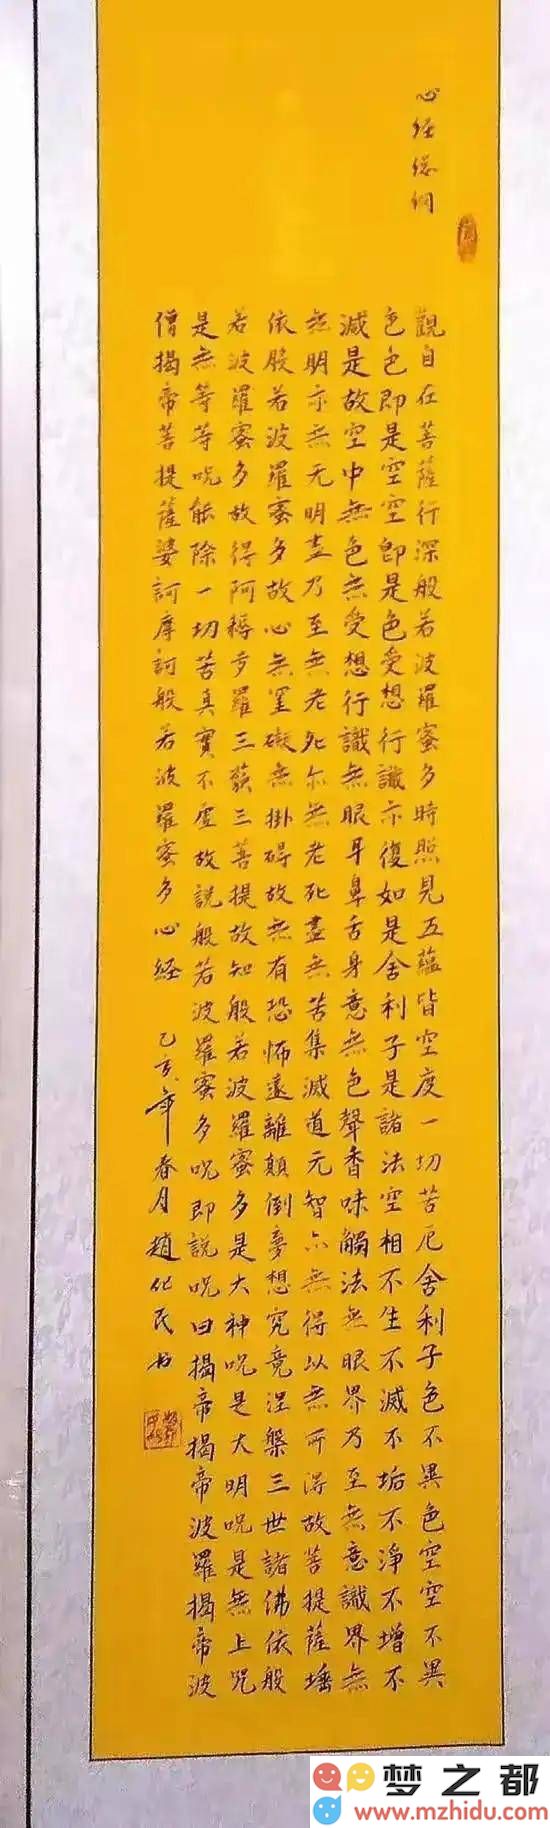 心经總纲
觀自在菩薩行深般若波羅蜜多時照見五蘊皆空度一切苦厄舍利子色不異色空空不異
色色即是空空即是色受想行識亦復如是舍利子是諸法空相不生不滅不垢不淨不增不
減是故空中無色無受想行識無眼耳鼻舌身意無色聲香味觸法無眼界乃至無意識界無
無明亦無无明盡乃至無老死亦無老死盡無苦集滅道元智亦無得以無所得故菩提薩埵
依般若波羅蜜多故心無罣礙無掛碍故無有恐怖遠離顛倒夢想究竟涅槃三世諸佛依般
若波羅蜜多故得阿耨多羅三藐三菩提故知般若波羅蜜多是大神呪是大明呪是無上咒
是無等等呪能除一切苦真實不虛故說般若波羅蜜多呪即說呪曰揭帝揭帝波羅揭帝波
僧揭帝菩提薩婆訶摩訶般若波羅蜜多心經 乙亥年春月趙化民书
梦之都
www.mzhidu.com